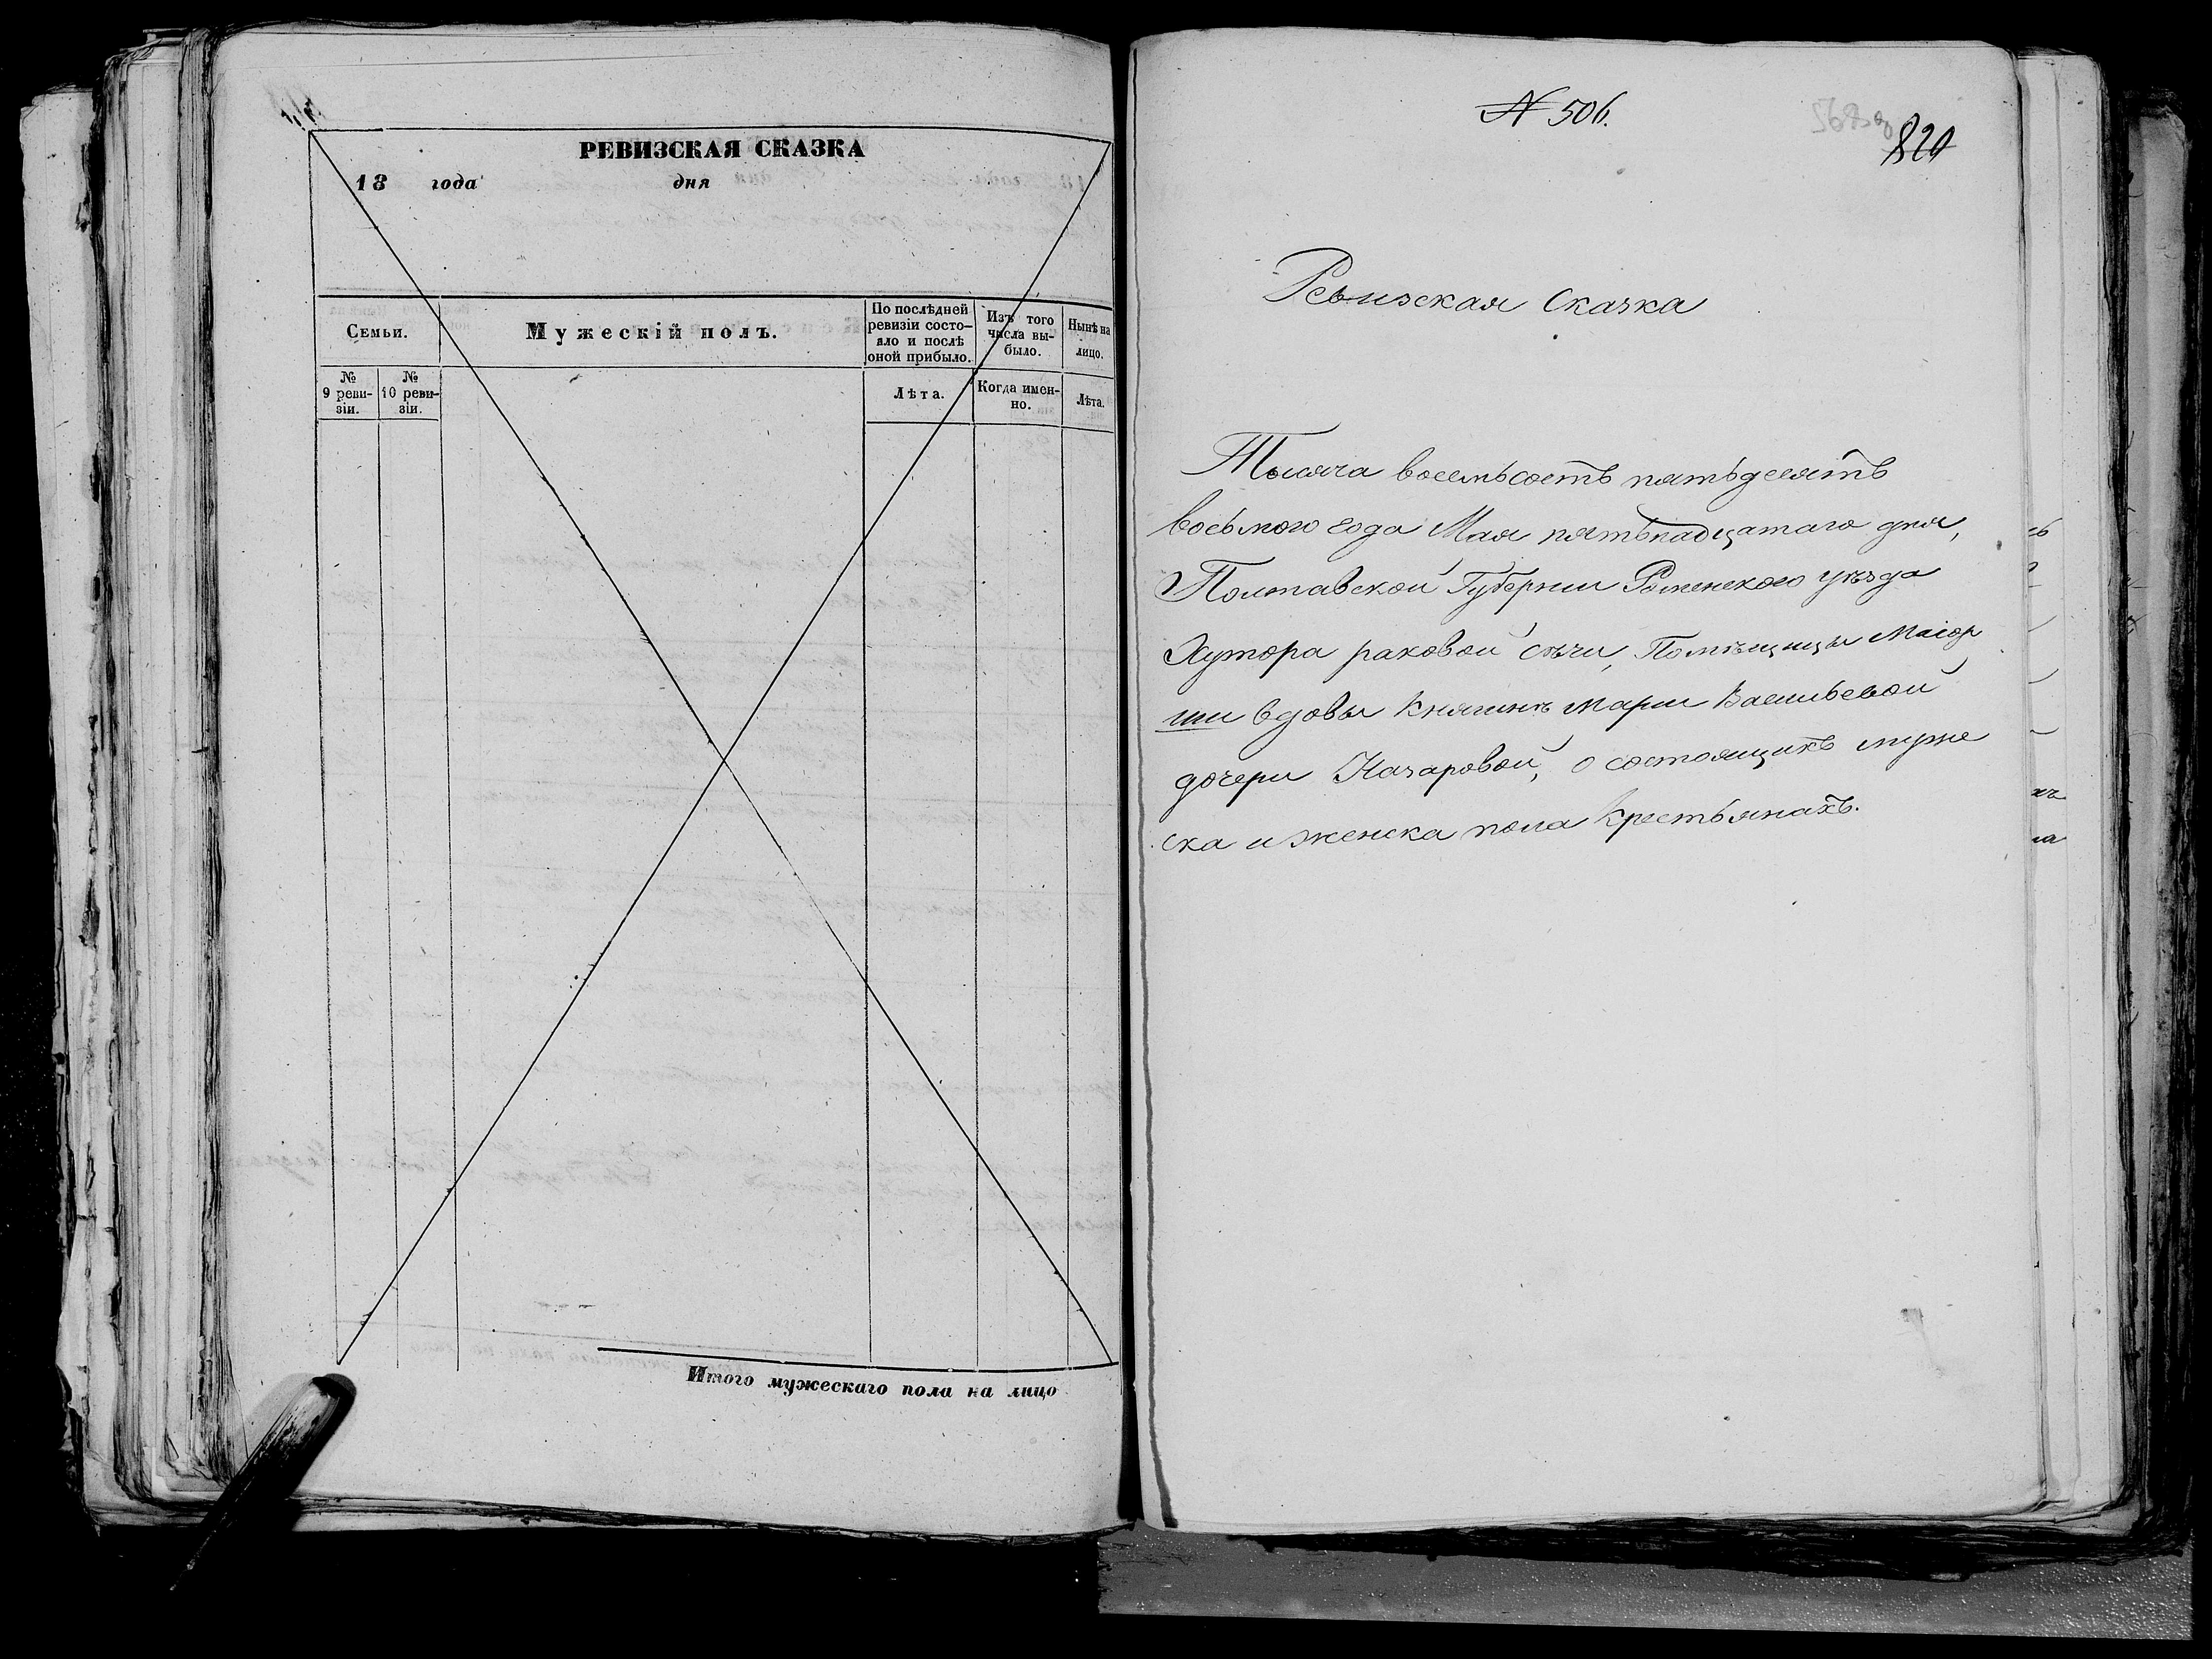 РЕВИЗСКАЯ СКАЗКА
18 года дня
Семьи.
Мужескій полъ.
По послѣдней
ревизіи состо-
яло и послѣ
оной прибыло.
Изъ того
числа вы-
было.
Нынѣ на
лицо.
№
9 реви-
зіи.
№
10 реви-
зіи.
Лѣта.
Когда имен-
но.
Лѣта.
Итого мужескаго пола на лицо
№ 506.
820
Ревизская Сказка
Тысяча восемьсотъ пятьдесятъ
восьмого года Мая пятьнадцатаго дня,
Полтавской Губерніи Роменского уѣзда
Хутора раковой сѣчи, Помѣщицы Маіор
ши вдовы Княгинѣ Маріи Васильевой
дочери Назаровой, о состоящихъ муже
ска и женска пола Крестьянахъ.